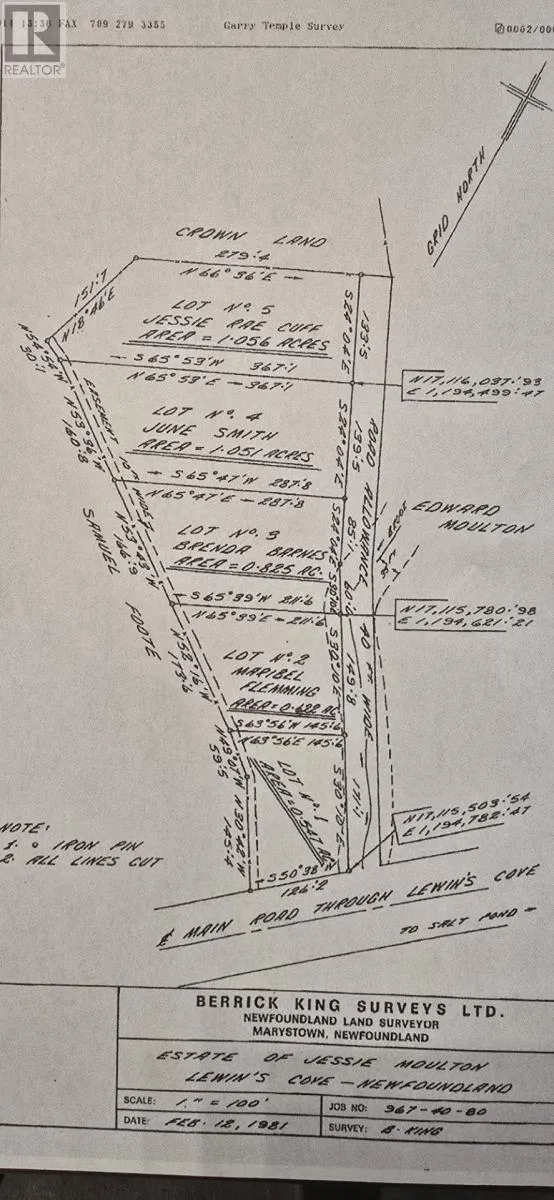 13:36 FAX 709 279 3355
Garry Temple Survey
REALTOR®
GRID NORTH
CROWN LAND
279.4
N 66° 36' E
151.7
N 18° 46' E
LOT Nº. 5
JESSIE RAE CUFF
AREA = 1.056 ACRES
S 24° 04' E
133.5
S 65° 53' W 367.1
N 65° 53' E 367.1
N 17,116,037.93
E 1,194,499.47
LOT Nº. 4
JUNE SMITH
AREA = 1.051 ACRES
S 24° 04' E
139.5
N 53° 36' W
160.8
EASEMENT 10 FT WIDE
S 65° 47' W 287.8
N 65° 47' E 287.8
ROAD ALLOWANCE 40 FT WIDE
EDWARD
MOULTON
LOT Nº. 3
BRENDA BARNES
AREA = 0.825 AC.
S 24° 04' E
85.1
60.0
146.9
SAMUEL FOOTE
S 65° 39' W 211.6
N 65° 39' E 211.6
N 17,115,780.98
E 1,194,621.21
LOT Nº. 2
MARIBEL
FLEMMING
AREA = 0.622 AC
S 30° 10' E
149.8
N 52° 16' W
173.6
S 63° 56' W 145.6
N 63° 56' E 145.6
LOT Nº. 1
AREA = 0.547 AC
59.5
N 30° 42' W
145.4
S 30° 10' E
171.1
N 17,115,503.54
E 1,194,782.47
S 50° 38' W
126.2
NOTE:
1. o IRON PIN
2. ALL LINES CUT
℄ MAIN ROAD THROUGH LEWIN'S COVE
TO SALT POND
BERRICK KING SURVEYS LTD.
NEWFOUNDLAND LAND SURVEYOR
MARYSTOWN, NEWFOUNDLAND
ESTATE OF JESSIE MOULTON
LEWIN'S COVE — NEWFOUNDLAND
SCALE: 1" = 100'
JOB NO: 967-40-80
DATE: FEB. 12, 1981
SURVEY: B. KING